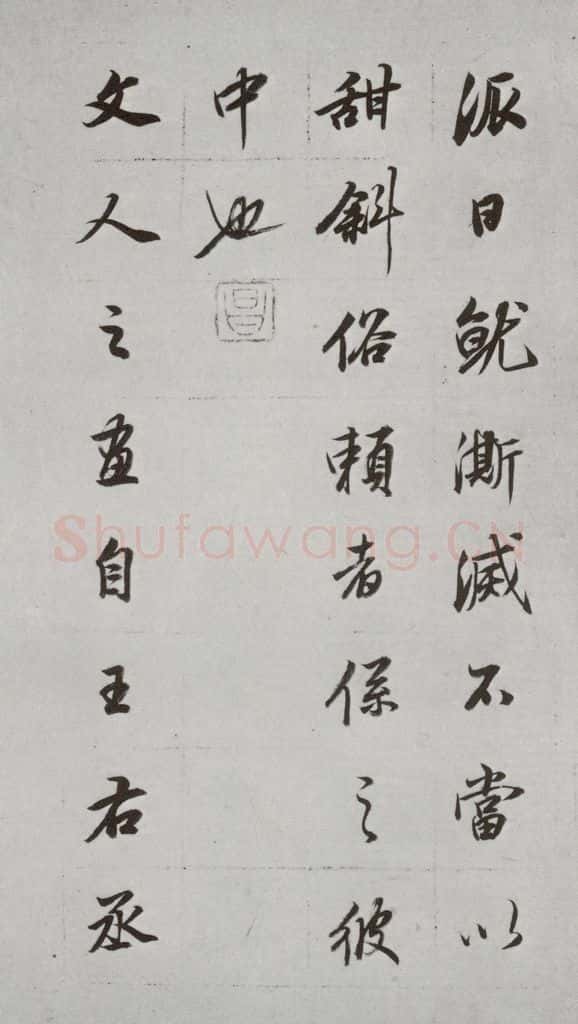 派日就澌滅不當以
甜斜俗頼者係之彼
中也
昌
文人之畫自王右丞
Shufawang.CN